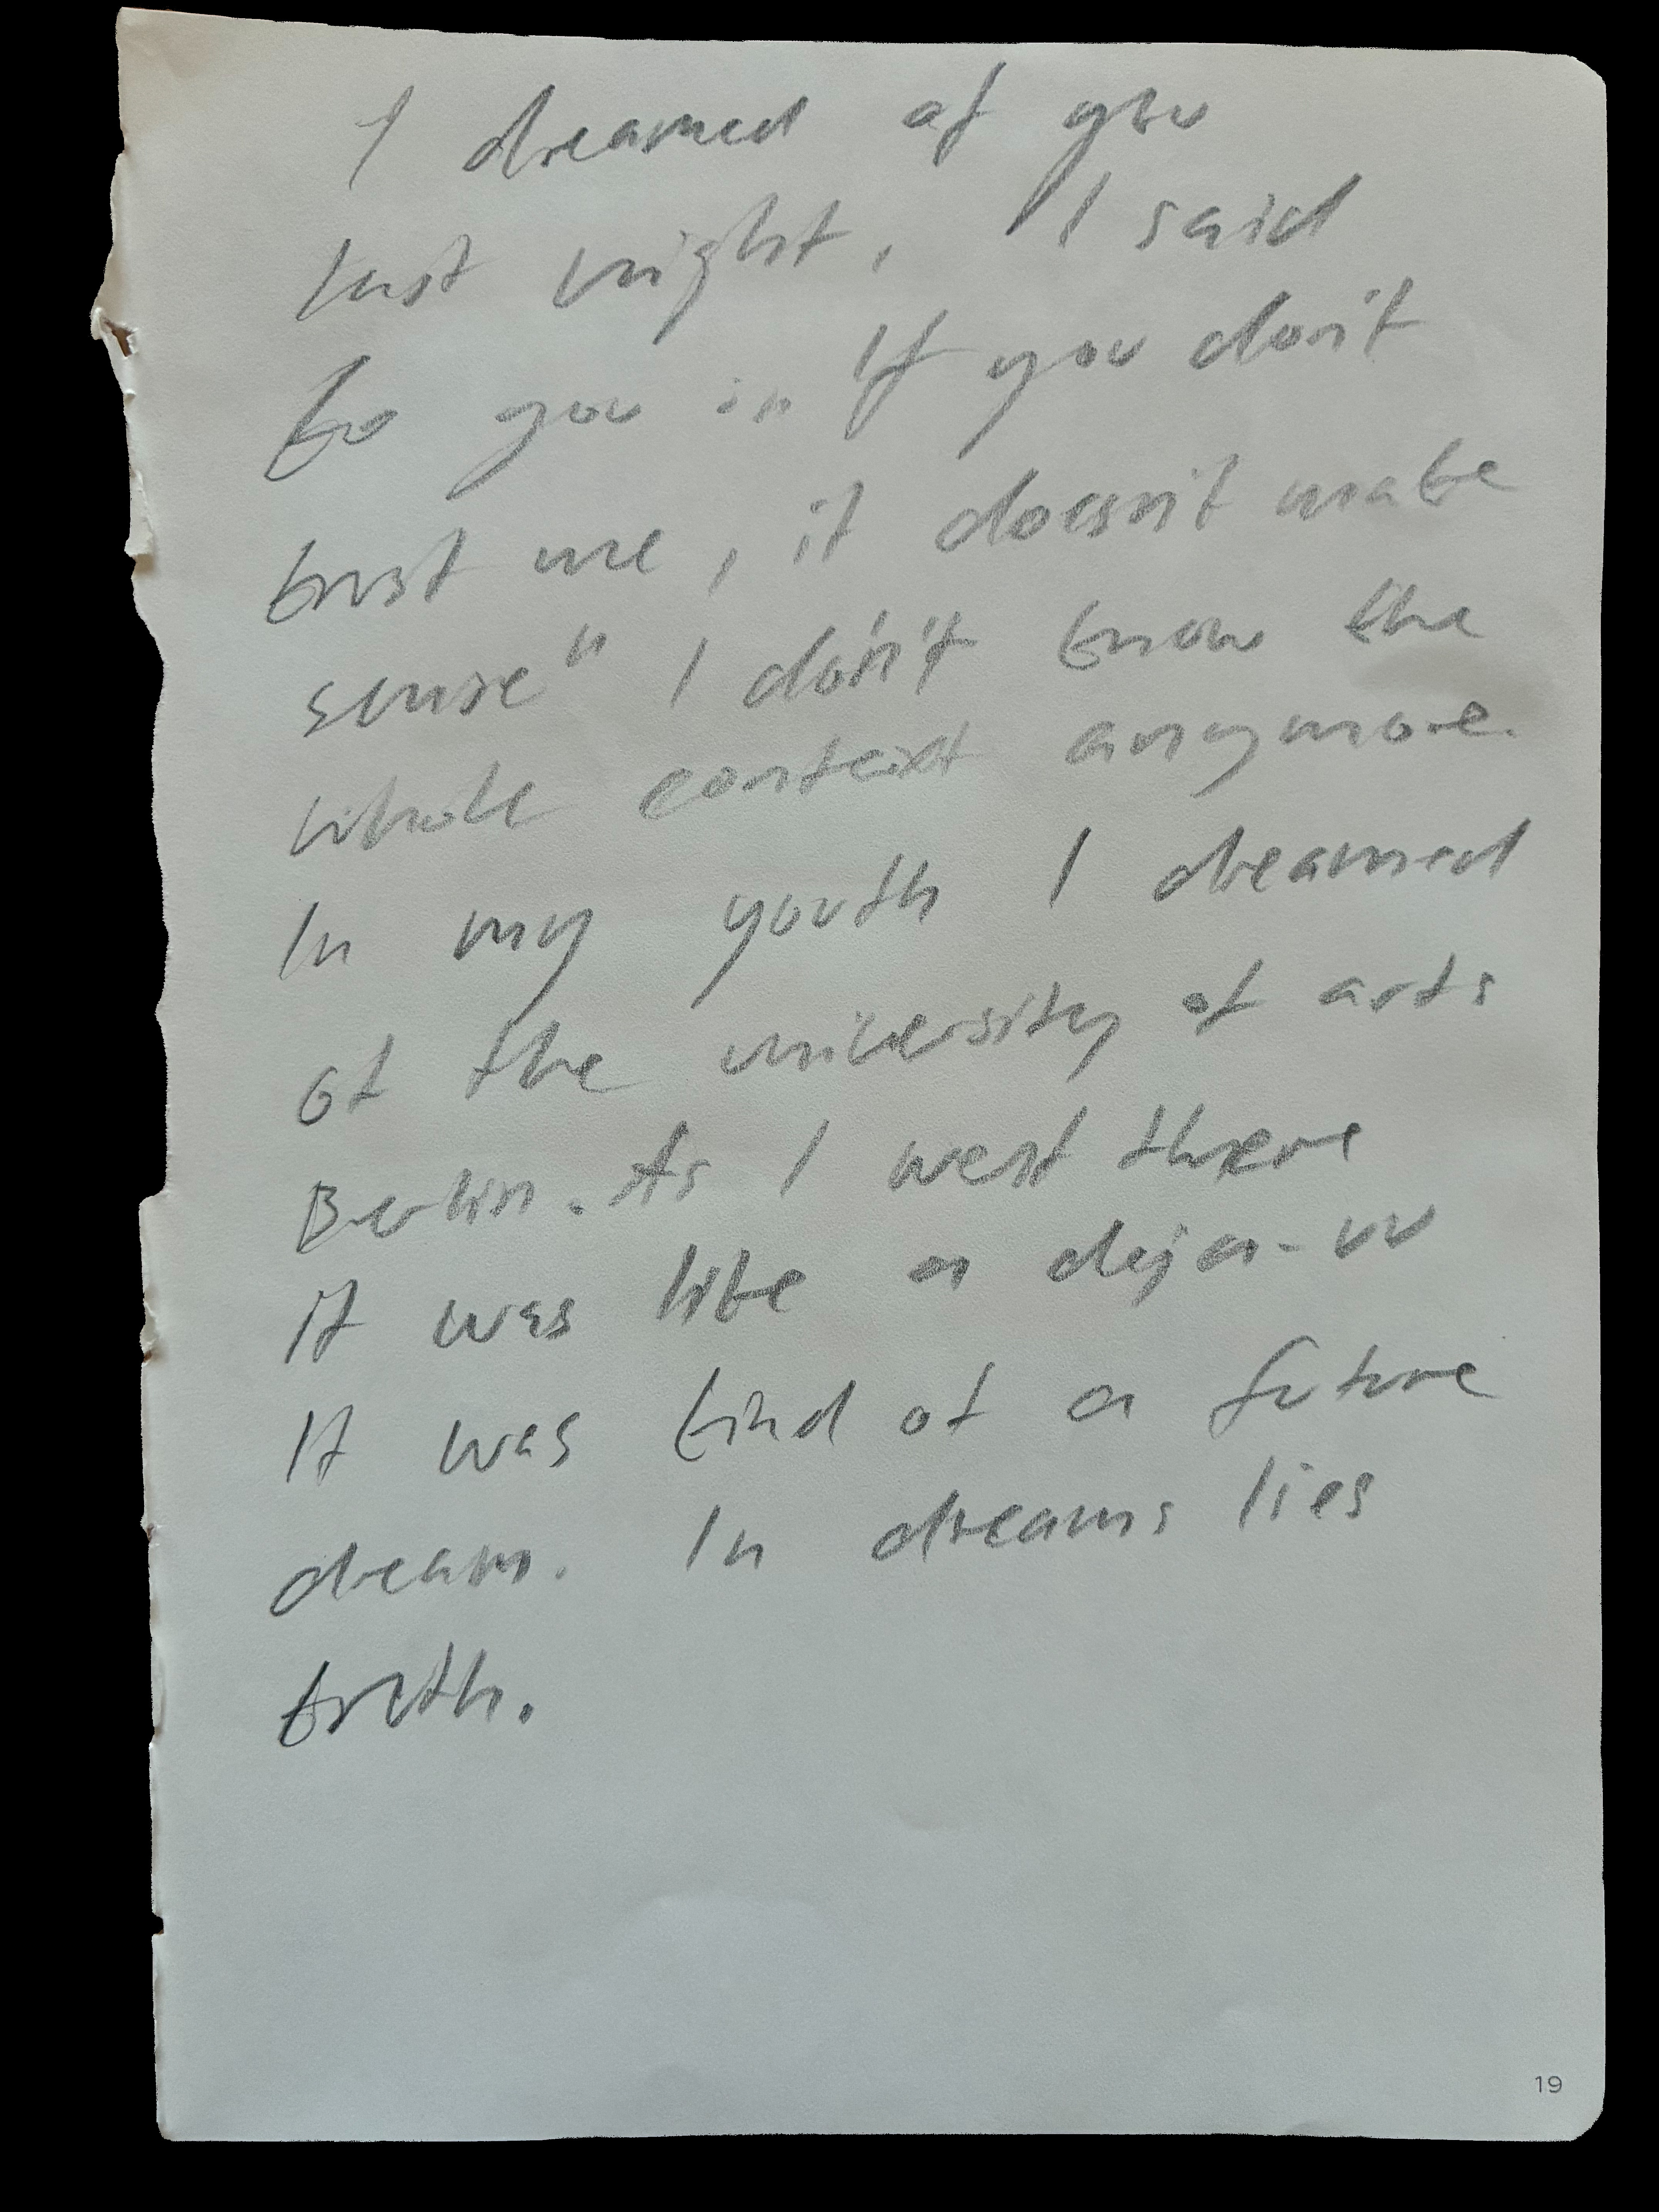 I dreamed of you
last night, I said
to you „ If you don't
trust me, it doesn't make
sense" I don't know the
whole context anymore.
In my youth I dreamed
of the university of arts
Berlin. As I went there
it was like a deja-vu
It was kind of a future
dream. In dreams lies
truth.
19